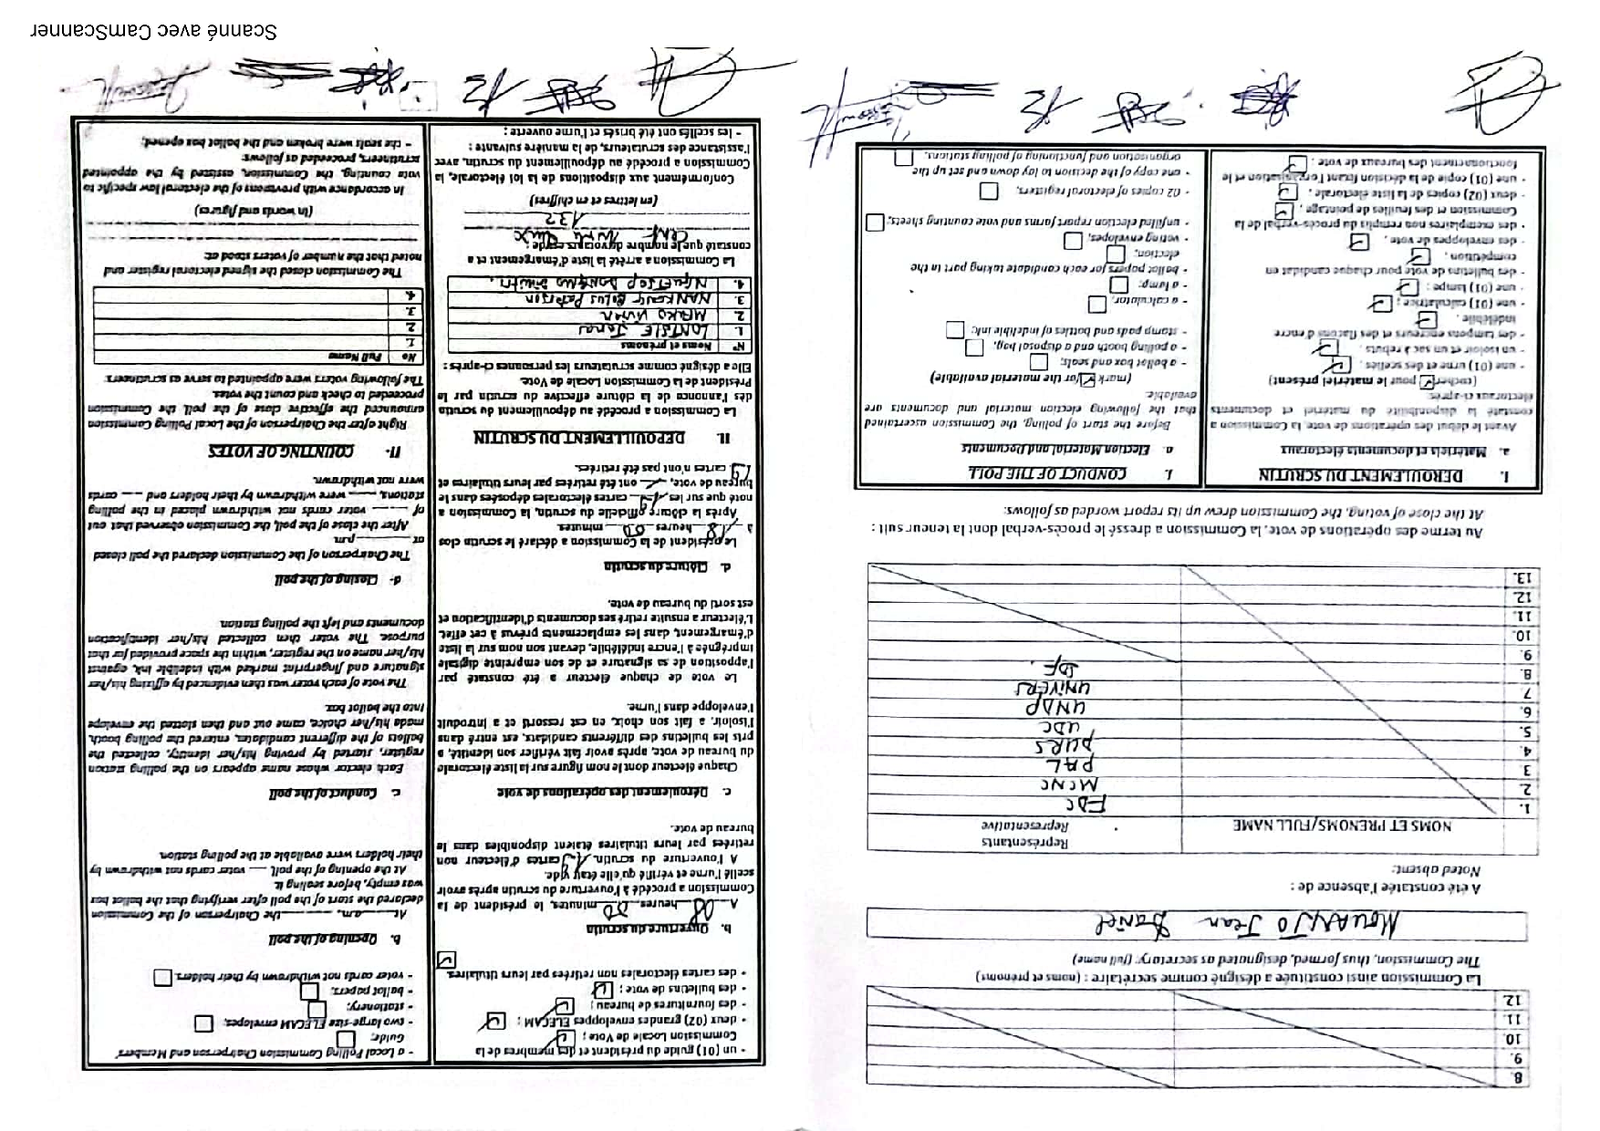 8
9
10
11
12
La Commission ainsi constituée a désigné comme secrétaire : (noms et prénoms)
The Commission, thus formed, designated as secretary: (full name)
Jean Daniel
A été constatée l'absence de :
Noted absent:
NOMS ET PRENOMS/FULL NAME
Représentants
Representative
1. FDC
2. MCNC
3. PAL
4. PURS
5. UDC
6. UNDP
7 UNIVERS
8. DF.
9.
10.
11.
12.
13.
Au terme des opérations de vote, la Commission a dressé le procès-verbal dont la teneur suit :
At the close of voting, the Commission drew up its report worded as follows:
I. DEROULEMENT DU SCRUTIN
a. Matériels et documents électoraux
Avant le début des opérations de vote, la Commission a
constaté la disponibilité du matériel et documents
électoraux ci-après:
(cocher pour le matériel présent)
- une (01) urne et des scellés ;
- un isoloir et un sac à rebuts ;
- des tampons encreurs et des flacons d'encre
indélébile ;
- une (01) calculatrice ;
- une (01) lampe ;
- des bulletins de vote pour chaque candidat en
compétition ;
- des enveloppes de vote ;
- des exemplaires non remplis du procès-verbal de la
Commission et des feuilles de pointage ;
- deux (02) copies de la liste électorale ;
- une (01) copie de la décision fixant l'organisation et le
fonctionnement des bureaux de vote ;
I. CONDUCT OF THE POLL
a. Election Material and Documents
Before the start of polling, the Commission ascertained
that the following election material and documents are
available:
(mark for the material available)
- a ballot box and seals;
- a polling booth and a disposal bag,
- stamp pads and bottles of indelible ink;
- a calculator,
- a lamp;
- ballot papers for each candidate taking part in the
election;
- voting envelopes,
- unfilled election report forms and vote counting sheets;
- 02 copies of electoral registers,
- one copy of the decision to lay down and set up the
organisation and functioning of polling stations,
- un (01) guide du président et des membres de la
Commission Locale de Vote ;
- deux (02) grandes enveloppes ELECAM ;
- des fournitures de bureau ;
- des bulletins de vote ;
- des cartes électorales non retirées par leurs titulaires.
b. Ouverture du scrutin
A 08 heures 00 minutes, le président de la
Commission a procédé à l'ouverture du scrutin après avoir
scellé l'urne et vérifié qu'elle était vide.
A l'ouverture du scrutin, 19 cartes d'électeur non
retirées par leurs titulaires étaient disponibles dans le
bureau de vote.
c. Déroulement des opérations de vote
Chaque électeur dont le nom figure sur la liste électorale
du bureau de vote, après avoir fait vérifier son identité, a
pris les bulletins des différents candidats, est entré dans
l'isoloir, a fait son choix, en est ressorti et a introduit
l'enveloppe dans l'urne.
Le vote de chaque électeur a été constaté par
l'apposition de sa signature et de son empreinte digitale
imprégnée à l'encre indélébile, devant son nom sur la liste
d'émargement, dans les emplacements prévus à cet effet.
L'électeur a ensuite retiré ses documents d'identification et
est sorti du bureau de vote.
d. Clôture du scrutin
Le président de la Commission a déclaré le scrutin clos
à 18 heures 00 minutes.
Après la clôture officielle du scrutin, la Commission a
noté que sur les cartes électorales déposées dans le
bureau de vote, ont été retirées par leurs titulaires et
19 cartes n'ont pas été retirées.
II. DEPOUILLEMENT DU SCRUTIN
La Commission a procédé au dépouillement du scrutin
dès l'annonce de la clôture effective du scrutin par le
Président de la Commission Locale de Vote.
Elle a désigné comme scrutateurs les personnes ci-après :
N° Noms et prénoms
1.
2.
3.
4.
La Commission a arrêté la liste d'émargement et a
constaté que le nombre de votants est de :
132
(en lettres et en chiffres)
Conformément aux dispositions de la loi électorale, la
Commission a procédé au dépouillement du scrutin, avec
l'assistance des scrutateurs, de la manière suivante :
- les scellés ont été brisés et l'urne ouverte ;
- a Local Polling Commission Chairperson and Members'
Guide;
- two large-size ELECAM envelopes;
- stationery;
- ballot papers;
- voter cards not withdrawn by their holders.
b. Opening of the poll
At a.m, the Chairperson of the Commission
declared the start of the poll after verifying that the ballot box
was empty, before sealing it.
At the opening of the poll, voter cards not withdrawn by
their holders were available at the polling station.
c. Conduct of the poll
Each elector whose name appears on the polling station
register, started by proving his/her identity, collected the
ballots of the different candidates, entered the polling booth,
made his/her choice, came out and then slotted the envelope
into the ballot box.
The vote of each voter was then evidenced by affixing his/her
signature and fingerprint marked with indelible ink, against
his/her name on the register, within the space provided for that
purpose. The voter then collected his/her identification
documents and left the polling station.
d- Closing of the poll
The Chairperson of the Commission declared the poll closed
at p.m.
After the close of the poll, the Commission observed that out
of voter cards not withdrawn placed in the polling
stations, were withdrawn by their holders and cards
were not withdrawn.
II- COUNTING OF VOTES
Right after the Chairperson of the Local Polling Commission
announced the effective close of the poll, the Commission
proceeded to check and count the votes.
The following voters were appointed to serve as scrutineers:
No Full Name
1.
2.
3.
4.
The Commission closed the signed electoral register and
noted that the number of voters stood at:
(in words and figures)
In accordance with provisions of the electoral law specific to
vote counting, the Commission, assisted by the appointed
scrutineers, proceeded as follows:
- the seals were broken and the ballot box opened;
Scanné avec CamScanner